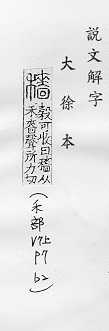 說文解字
大徐本
穡
穀可收曰穡从
禾嗇聲所力切
(禾部 V7上 P7 b2)